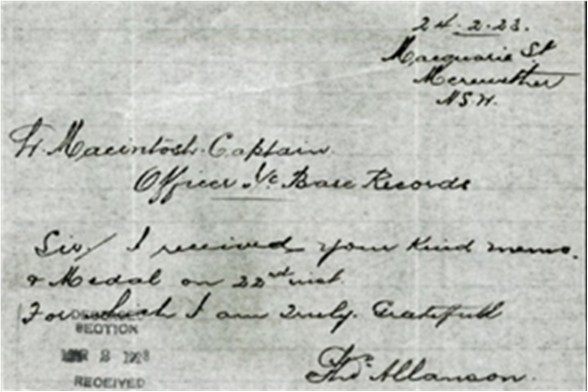 24-2-23.
Macquarie St
Merewether
N.S.W.
Macintosh. Captain.
Officer I/c Base Records
Sir/ I received your kind memo.
& Medal on 22nd inst.
For which I am Truly Gratefull
SECTION
MAR 2
RECEIVED
Thos Allanson.